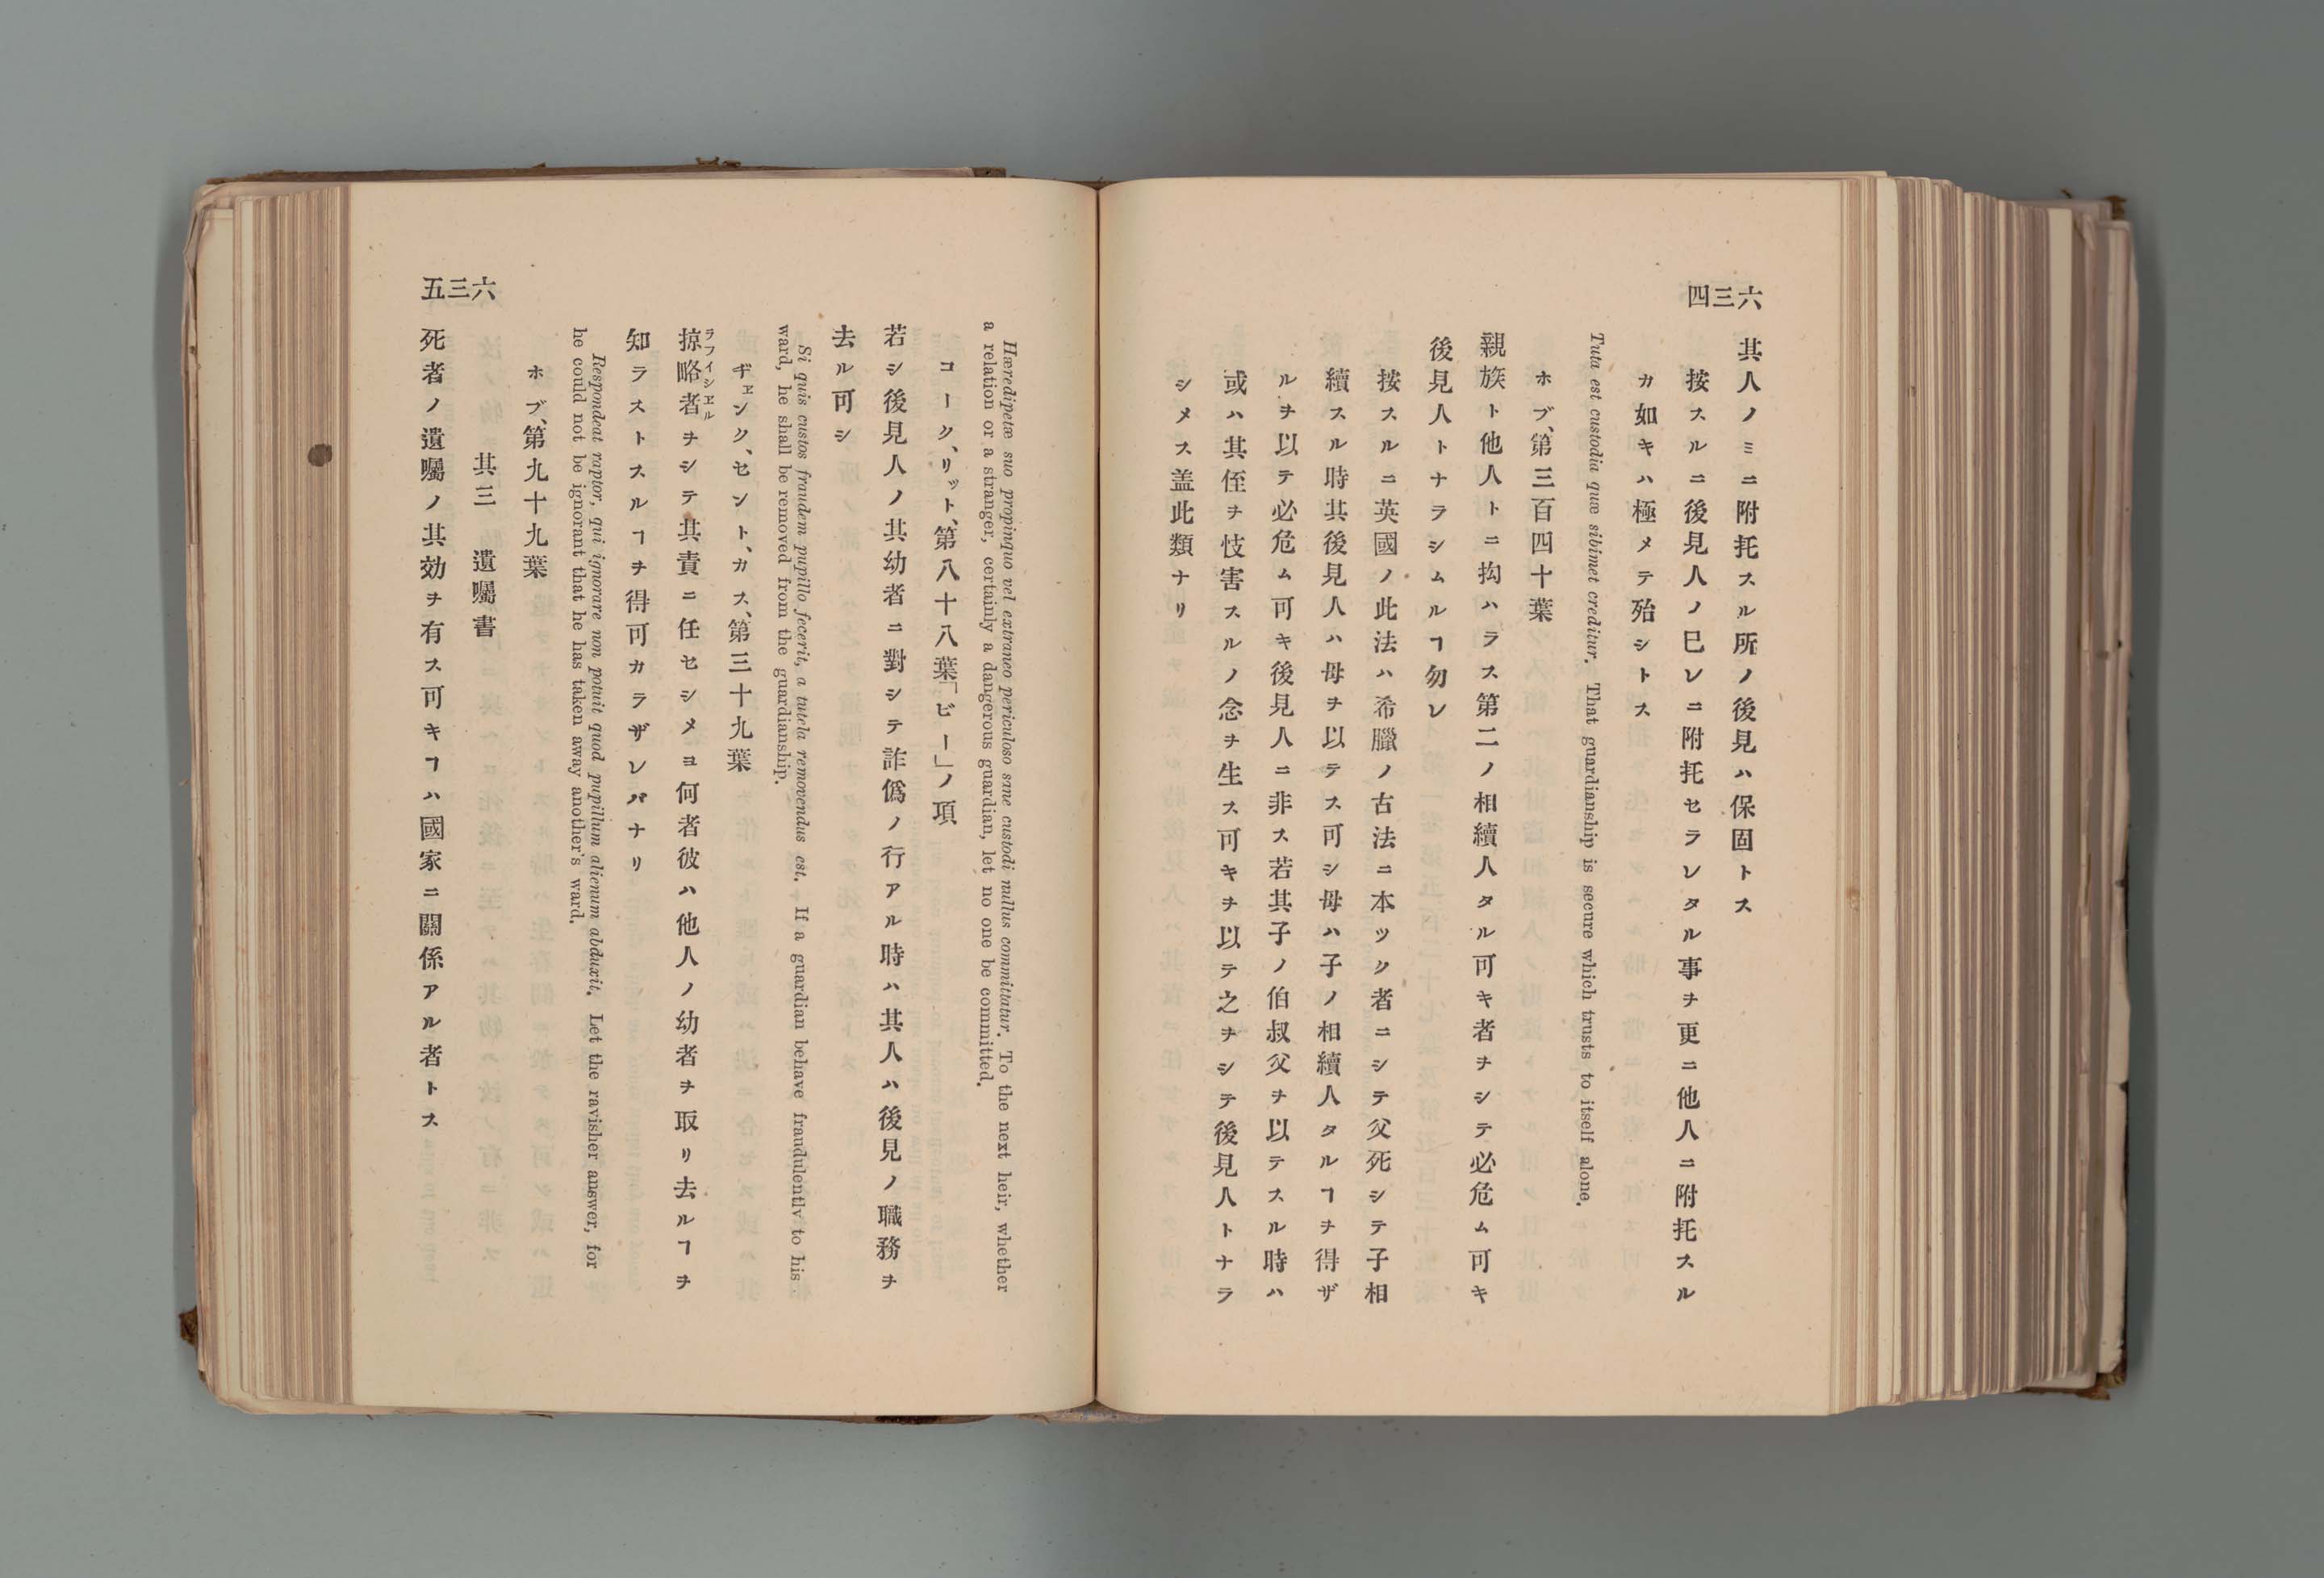 六三四
其人ノミニ附托スル所ノ後見ハ保固トス
按スルニ後見人ノ已レニ附托セラレタル事ヲ更ニ他人ニ附托スル
カ如キハ極メテ殆シトス
Tuta est custodia quæ sibimet creditur. That guardianship is secure which trusts to itself alone.
ホブ、第三百四十葉
親族ト他人トニ拘ハラス第二ノ相續人タル可キ者ヲシテ必危ム可キ
後見人トナラシムルヿ勿レ
按スルニ英國ノ此法ハ希臘ノ古法ニ本ツク者ニシテ父死シテ子相
續スル時其後見人ハ母ヲ以テス可シ母ハ子ノ相續人タルヿヲ得ザ
ルヲ以テ必危ム可キ後見人ニ非ス若其子ノ伯叔父ヲ以テスル時ハ
或ハ其侄ヲ忮害スルノ念ヲ生ス可キヲ以テ之ヲシテ後見人トナラ
シメス盖此類ナリ
Hæredipetæ suo propinquo vel extraneo periculoso sane custodi nullus committatur. To the next heir, whether
a relation or a stranger, certainly a dangerous guardian, let no one be committed.
コーク、リット、第八十八葉「ビー」ノ項
若シ後見人ノ其幼者ニ對シテ詐僞ノ行アル時ハ其人ハ後見ノ職務ヲ
去ル可シ
Si quis custos fraudem pupillo fecerit, a tutela removendus est. If a guardian behave fraudulently to his
ward, he shall be removed from the guardianship.
ヂェンク、セント、カス、第三十九葉
掠略者ラフイシエルヲシテ其責ニ任セシメヨ何者彼ハ他人ノ幼者ヲ取リ去ルヿヲ
知ラストスルヿヲ得可カラザレバナリ
Respondeat raptor, qui ignorare non potuit quod pupillum alienum abduxit. Let the ravisher answer, for
he could not be ignorant that he has taken away another's ward.
ホブ、第九十九葉
其三 遺囑書
六三五
死者ノ遺囑ノ其効ヲ有ス可キヿハ國家ニ關係アル者トス